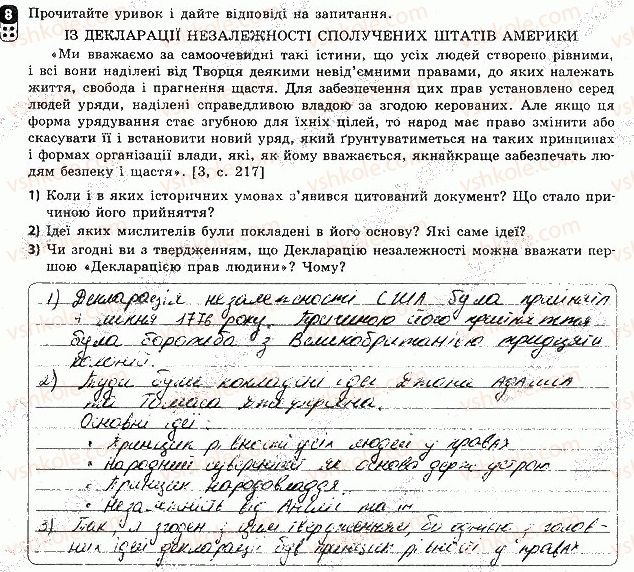 8 Прочитайте уривок і дайте відповіді на запитання.
ІЗ ДЕКЛАРАЦІЇ НЕЗАЛЕЖНОСТІ СПОЛУЧЕНИХ ШТАТІВ АМЕРИКИ
«Ми вважаємо за самоочевидні такі істини, що усіх людей створено рівними,
і всі вони наділені від Творця деякими невід’ємними правами, до яких належать
життя, свобода і прагнення щастя. Для забезпечення цих прав установлено серед
людей уряди, наділені справедливою владою за згодою керованих. Але якщо ця
форма урядування стає згубною для їхніх цілей, то народ має право змінити або
скасувати її і встановити новий уряд, який ґрунтуватиметься на таких принципах
і формах організації влади, які, як йому вважається, якнайкраще забезпечать лю-
дям безпеку і щастя». [3, с. 217]
1) Коли і в яких історичних умовах з’явився цитований документ? Що стало при-
чиною його прийняття?
2) Ідеї яких мислителів були покладені в його основу? Які саме ідеї?
3) Чи згодні ви з твердженням, що Декларацію незалежності можна вважати пер-
шою «Декларацією прав людини»? Чому?
1) Декларація незалежности США була прийнята
4 липня 1776 року. Причиною його прийняття
була боротьба з Великобританією тридцяти
колоній.
2) Туди були покладені ідеї Адамса
та Томаса
Основні ідеї:
• Принцип рівності усіх людей у правах
• Народний суверенітет як основа держ устрою
• Принцип народовладдя.
• Незалежність від Англії та ін
3) Так, я згоден з цим твердженням, бо однією з голов-
них ідей декларації був принцип рівності у правах